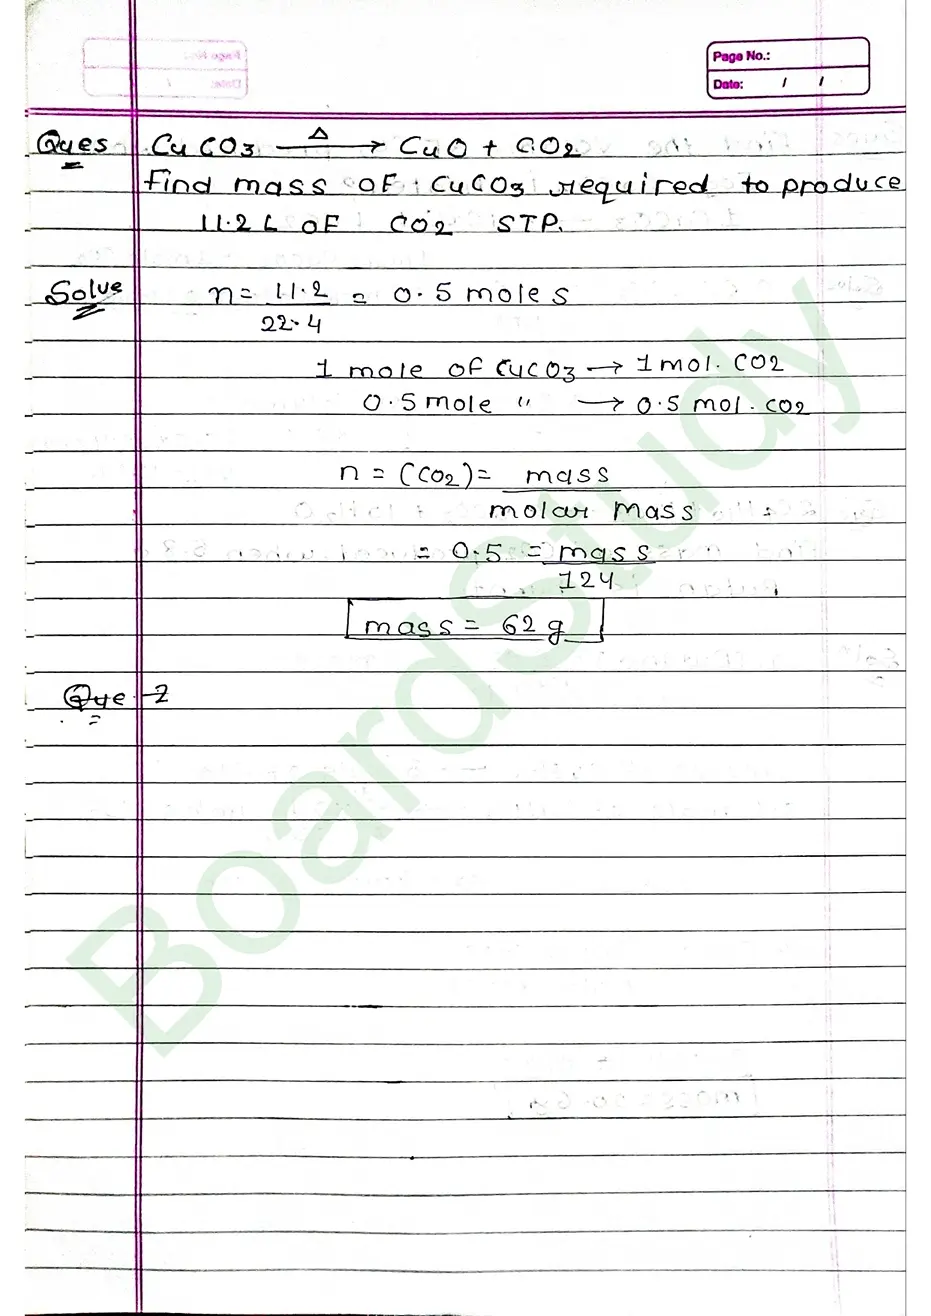 Page No.:
Date: / /
Ques CuCO3 —Δ→ CuO + CO2
Find mass of CuCO3 required to produce
11.2 L of CO2 STP.
Solve n = 11.2 / 22.4 = 0.5 moles
1 mole of CuCO3 → 1 mol. CO2
0.5 mole " → 0.5 mol. CO2
n = (CO2) = mass / molar mass
= 0.5 = mass / 124
mass = 62 g
Que 2
BoardStudy